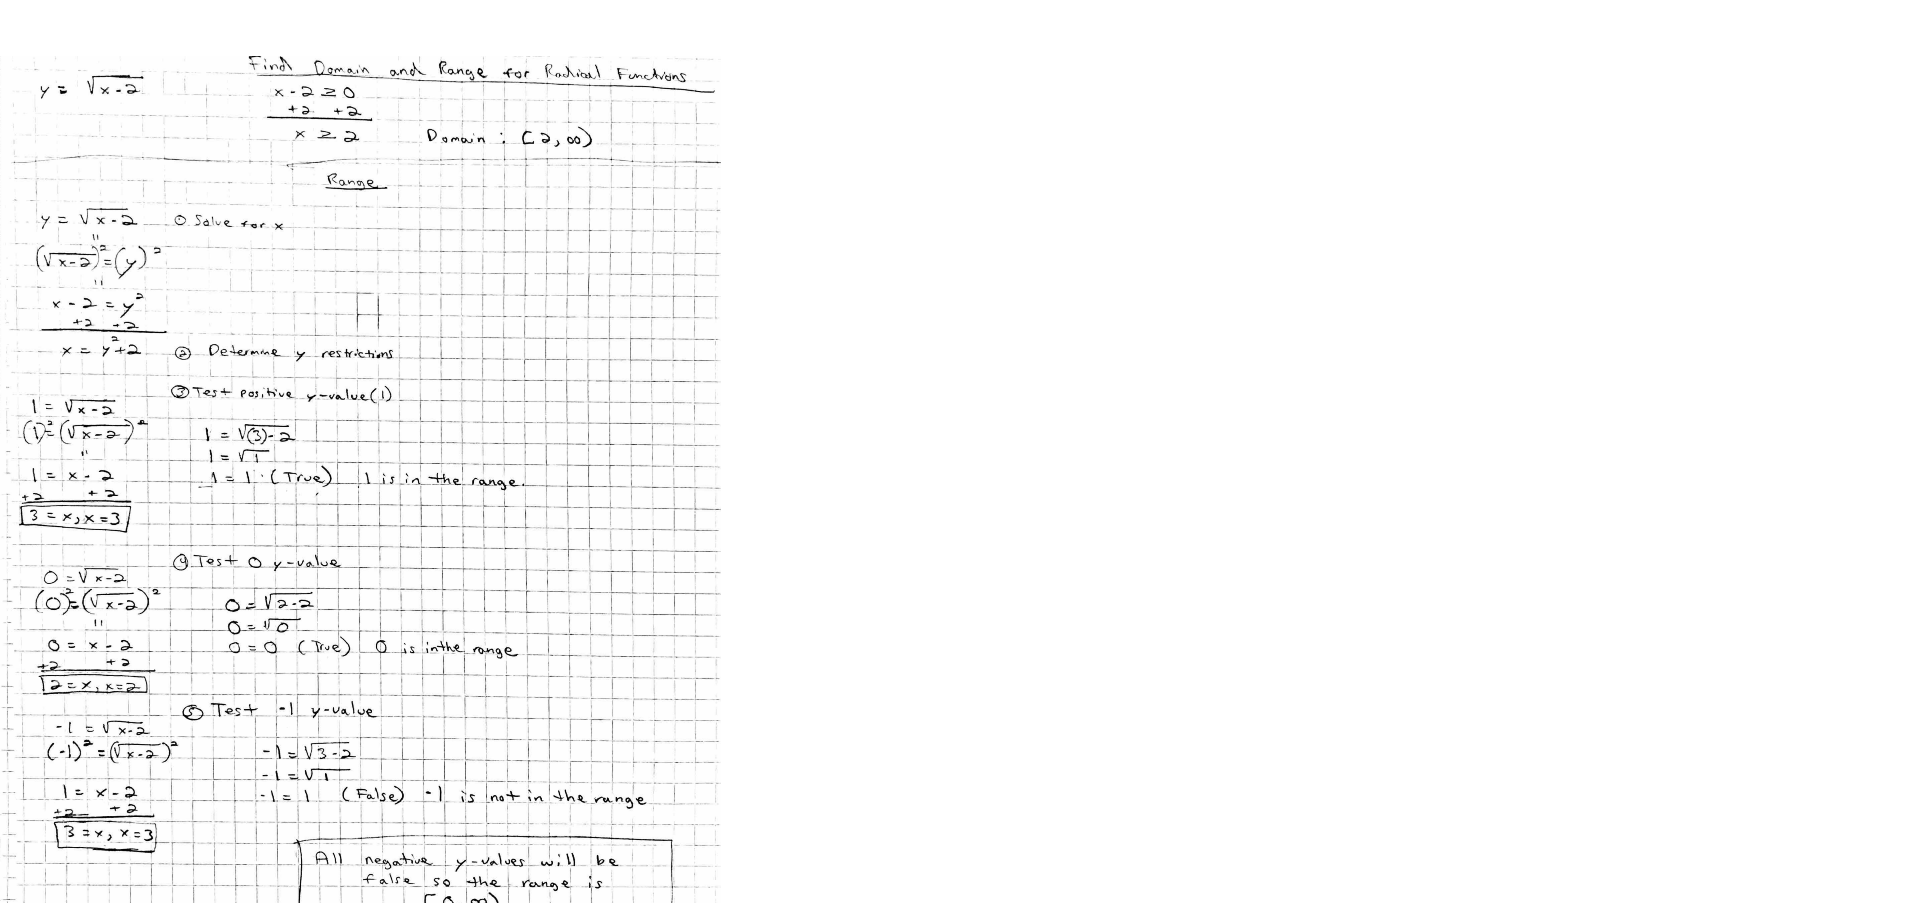 Find Domain and Range for Radical Functions
y = √x-2
x - 2 ≥ 0
+2 +2
x ≥ 2 Domain : [2, ∞)
Range
y = √x-2 ① Solve for x
"
(√x-2)² = (y)²
"
x - 2 = y²
+2 +2
x = y²+2 ② Determine y restrictions
③ Test positive y-value (1)
1 = √x-2
(1)² = (√x-2)²
"
1 = x - 2
+2 +2
3 = x, x = 3
1 = √(3)-2
1 = √1
1 = 1 (True) 1 is in the range.
④ Test 0 y-value
0 = √x-2
(0)² = (√x-2)²
"
0 = x - 2
+2 +2
2 = x, x = 2
0 = √2-2
0 = √0
0 = 0 (True) 0 is in the range
⑤ Test -1 y-value
-1 = √x-2
(-1)² = (√x-2)²
1 = x - 2
+2 +2
3 = x, x = 3
-1 = √3-2
-1 = √1
-1 = 1 (False) -1 is not in the range
All negative y-values will be
false so the range is
[0, ∞)